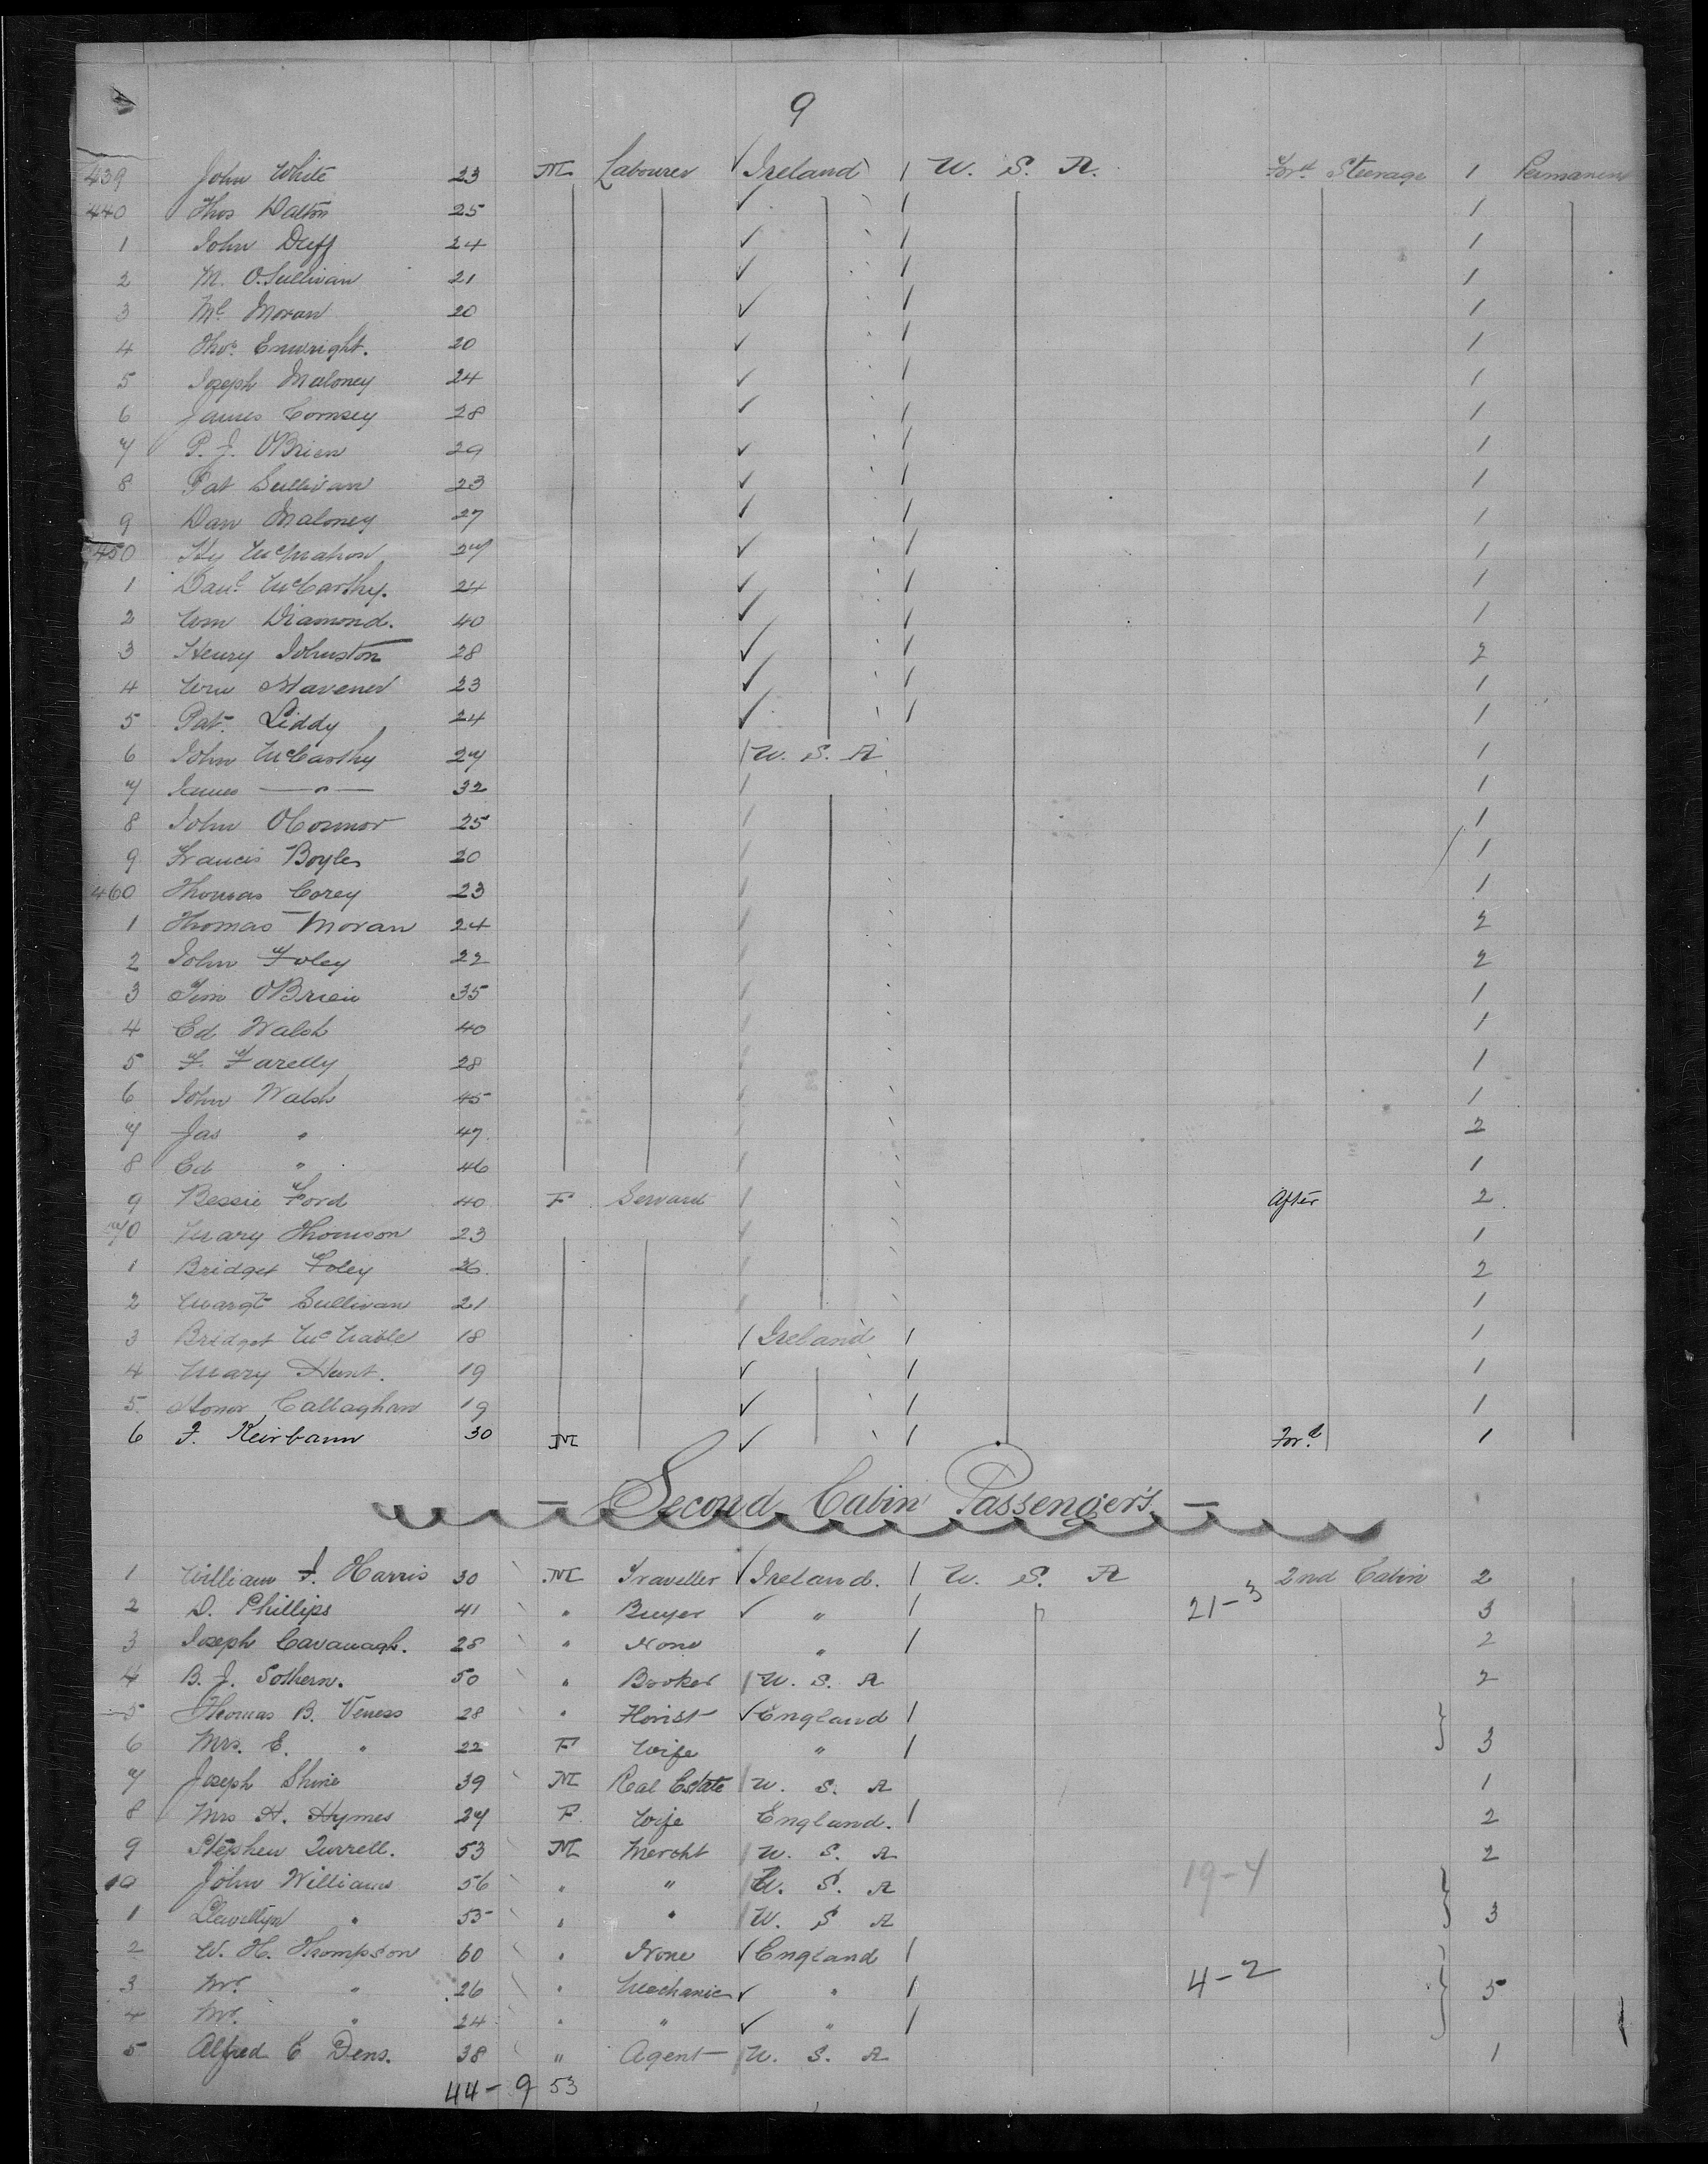 9
439 John White 23 M Labourer Ireland U. S. A. For'd Steerage 1 Permanent
440 Thos Dalton 25 1
1 John Duff 24 1
2 M. O'Sullivan 21 1
3 Ml Moran 20 1
4 Thos Enwright. 20 1
5 Joseph Maloney 24 1
6 James Comsey 28 1
7 P. J. OBrien 29 1
8 Pat Sullivan 23 1
9 Dan Maloney 27 1
450 Hy McMahon 27 1
1 Danl McCarthy. 24 1
2 Wm Diamond. 40 1
3 Henry Johnston 28 2
4 Wm 23 1
5 Pat Liddy 24 1
6 John McCarthy 27 U. S. A 1
7 James — " — 32 1
8 John OConnor 25 1
9 Francis Boyle 20 1
460 Thomas Corey 23 1
1 Thomas Moran 24 2
2 John Foley 22 2
3 Tim OBrien 35 1
4 Ed Walsh 40 1
5 F. Farelly 28 1
6 John Walsh 45 1
7 Jas " 47 2
8 Ed " 46 1
9 Bessie Ford 40 F Servant After 2
70 Mary Thomson 23 1
1 Bridget Foley 26 2
2 Margt Sullivan 21 1
3 Bridget 18 Ireland 1
4 Mary Hunt. 19 1
5 Honor Callaghan 19 1
6 F. Keirbann 30 M For'd 1
Second Cabin Passengers
1 William J. Harris 30 M Traveller Ireland. U. S. A 2nd Cabin 2
2 D. Phillips 41 " Buyer " 21-3 3
3 Joseph Cavanagh. 28 " None " 2
4 B. J. Sothern. 50 " Booker U. S. A 2
5 Thomas B. Veness 28 " Florist England
6 Mrs. E. " 22 F Wife " 3
7 Joseph Shine 39 M Real Estate U. S. A 1
8 Mrs H. Hymes 27 F. Wife England. 2
9 Stephen Turrell. 53 M Mercht U. S. A 2
10 John Williams 56 " " U. S. A 19-4
1 Llewellyn " 55 " " U. S A 3
2 W. H. Thompson 60 " None England
3 Mr. " 26 " Mechanic " 4-2 5
4 Mr. " 24 " " "
5 Alfred E Dens. 38 " Agent U. S. A 1
44- 9 53